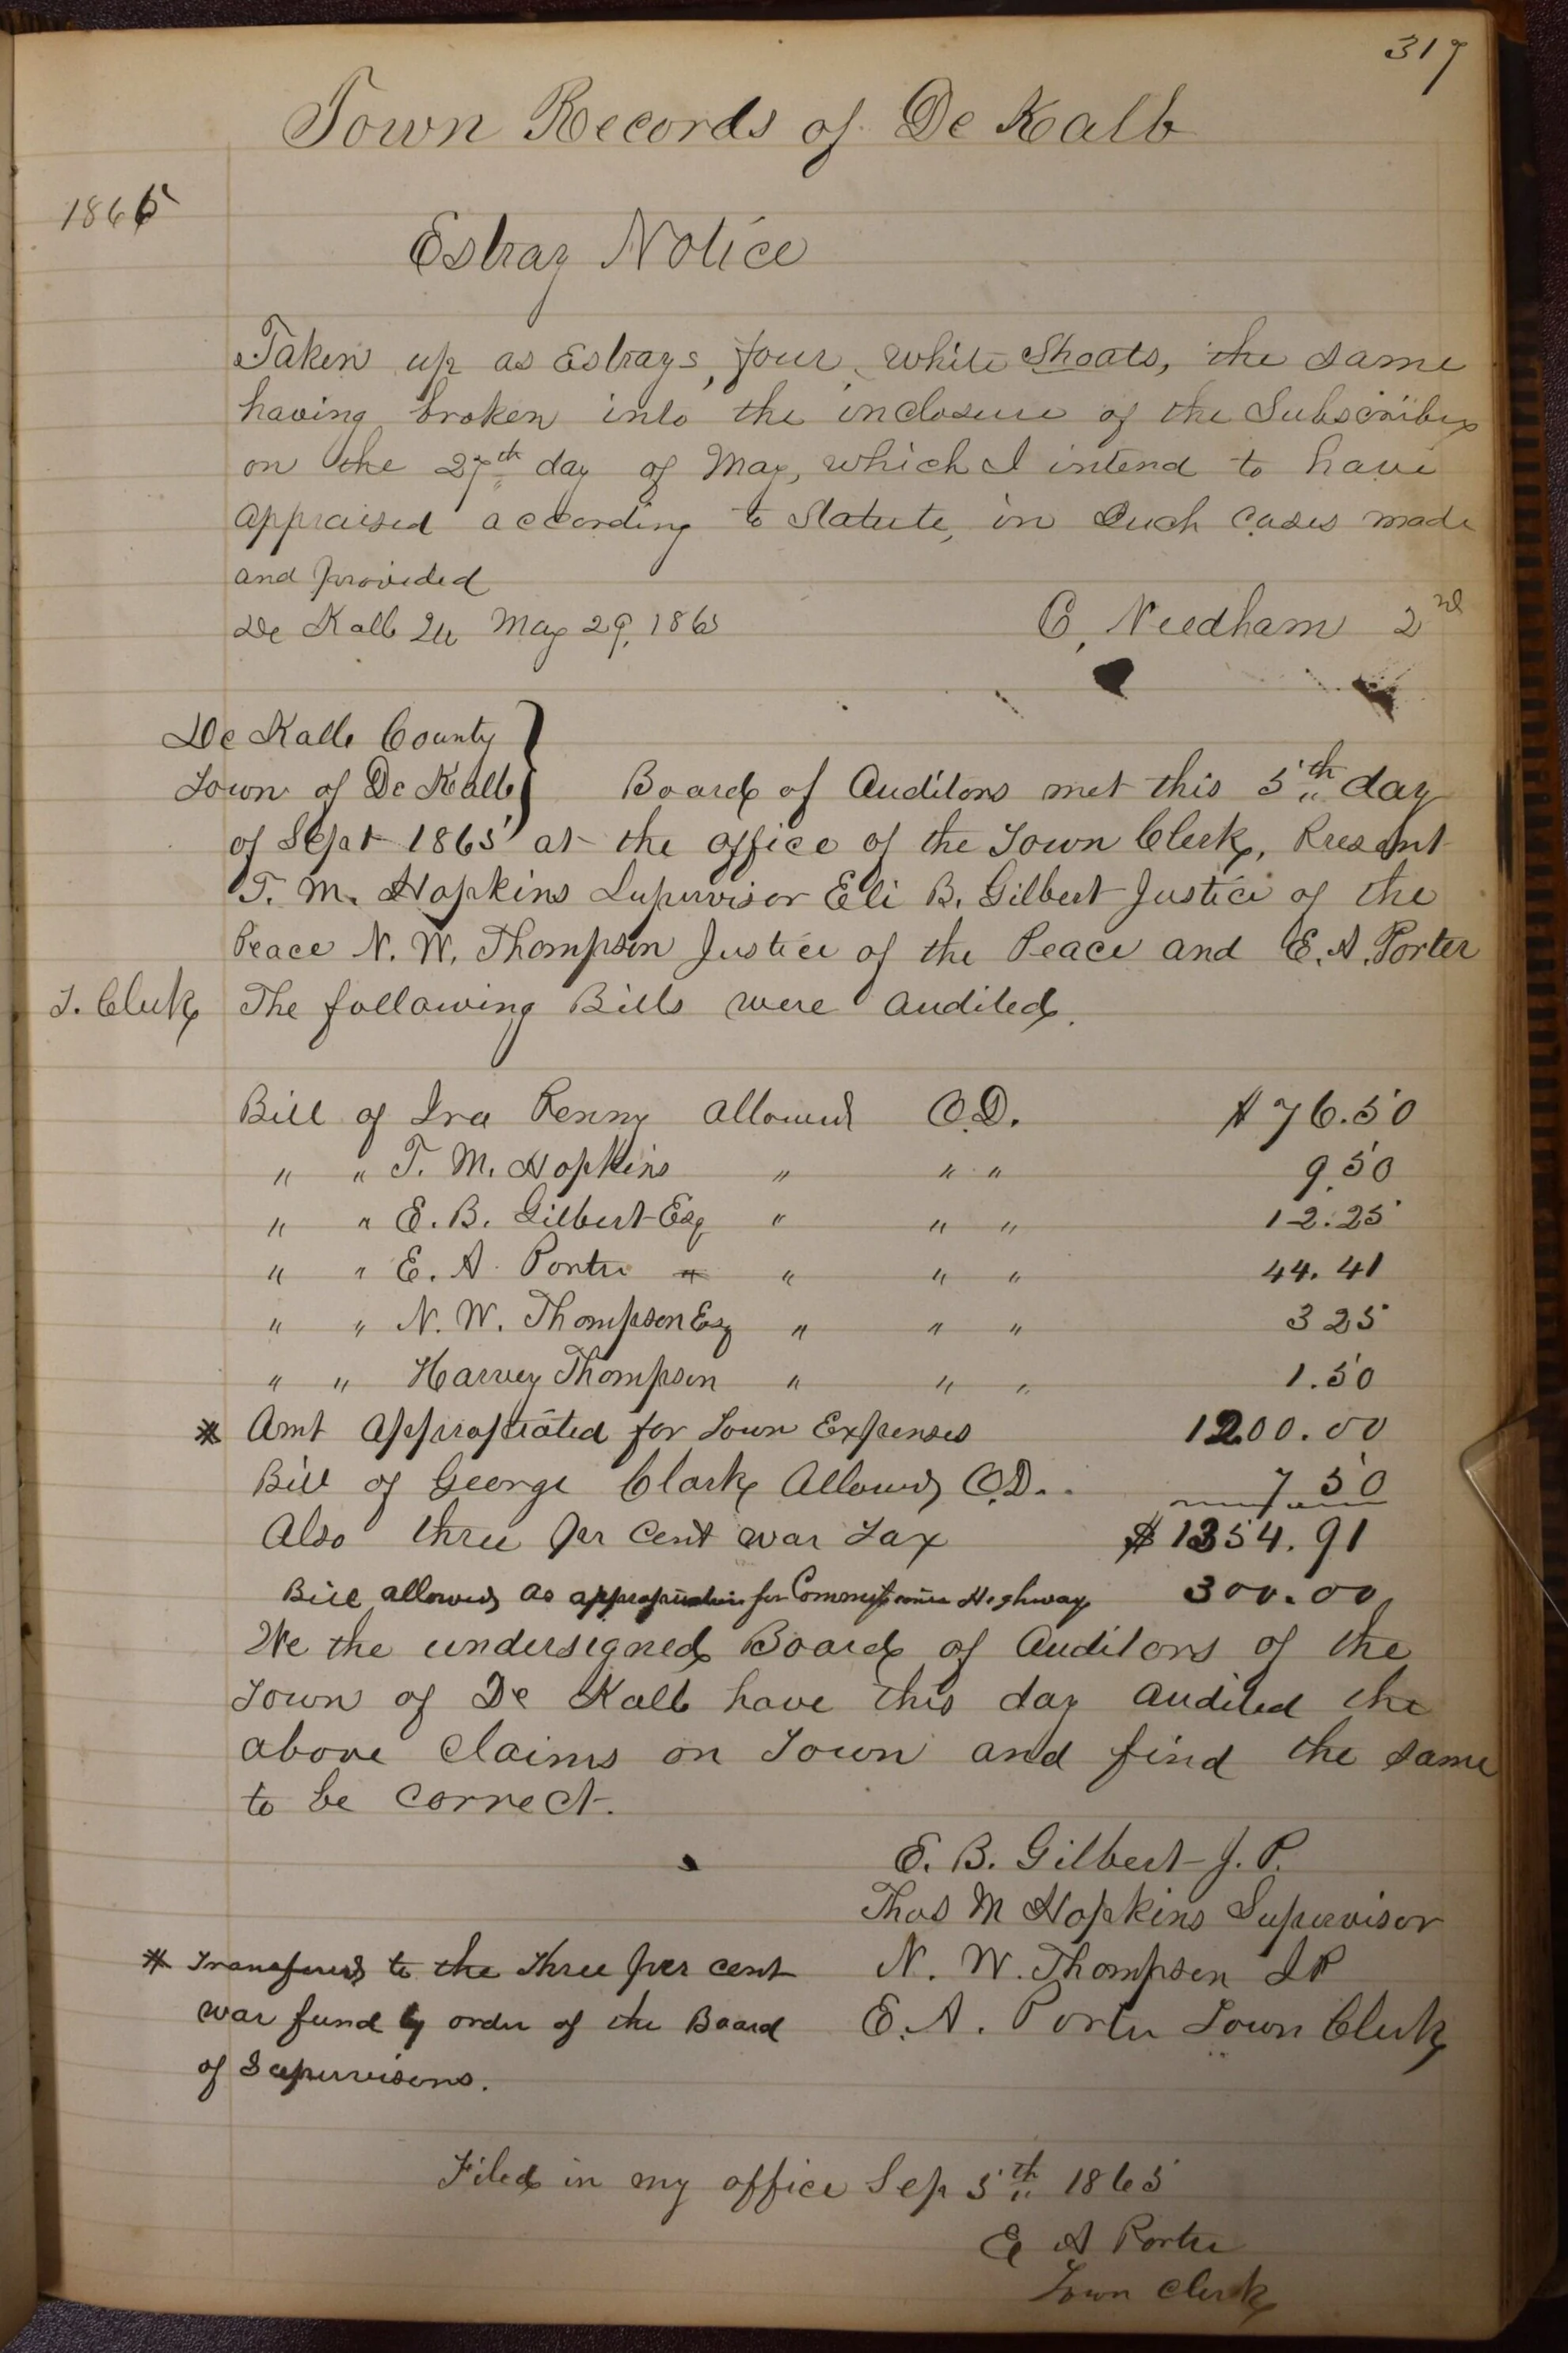 317
Town Records of De Kalb
1865
Estray Notice
Taken up as Estrays, four, white Shoats, the same
having broken into the inclosure of the Subscriber
on the 27th day of May, which I intend to have
appraised according to Statute, in Such Cases made
and provided
De Kalb Ill May 29, 1865
C. Needham 2nd
De Kalb County
Town of De Kalb } Board of Auditors met this 5th day
of Sept 1865 at the office of the Town Clerk, Present
T. M. Hopkins Supervisor Eli B. Gilbert Justice of the
Peace N. W. Thompson Justice of the Peace and E. A. Porter
T. Clerk The following Bills were audited.
Bill of Ira Penny allowed O.D. $76.50
" " T. M. Hopkins " " " 9.50
" " E. B. Gilbert Esq " " " 12.25
" " E. A. Porter " " " 44.41
" " N. W. Thompson Esq " " " 3 25
" " Harvey Thompson " " " 1.50
* Amt appropriated for Town Expenses 1200.00
Bill of George Clark Allowed O.D. 7 50
Also three per cent war Tax $1354.91
Bill allowed as appropriation for Commissioner Highway 300.00
We the undersigned Board of Auditors of the
Town of De Kalb have this day audited the
above Claims on Town and find the same
to be correct.
E. B. Gilbert J. P.
Thos M Hopkins Supervisor
* Transfered to the Three per cent N. W. Thompson J P
war fund by order of the Board E. A. Porter Town Clerk
of Supervisors.
Filed in my office Sep 5th 1865
E A Porter
Town Clerk